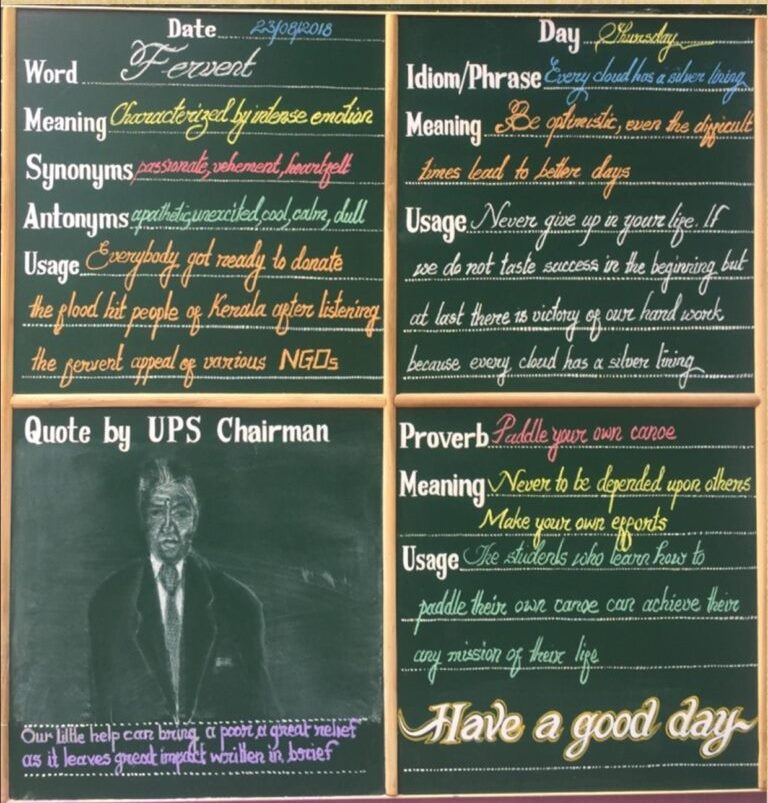 Date 23/08/2018
Word Fervent
Meaning Characterized by intense emotion
Synonyms passionate, vehement, heartfelt
Antonyms apathetic, unexcited, cool, calm, dull
Usage Everybody got ready to donate
the flood hit people of Kerala after listening
the fervent appeal of various NGOs
Day Thursday
Idiom/Phrase Every cloud has a silver lining
Meaning Be optimistic, even the difficult
times lead to better days
Usage Never give up in your life. If
we do not taste success in the beginning but
at last there is victory of our hard work
because every cloud has a silver lining
Quote by UPS Chairman
Our little help can bring a poor a great relief
as it leaves great impact written in brief
Proverb Paddle your own canoe
Meaning Never to be depended upon others
Make your own efforts
Usage The students who learn how to
paddle their own canoe can achieve their
any mission of their life
Have a good day